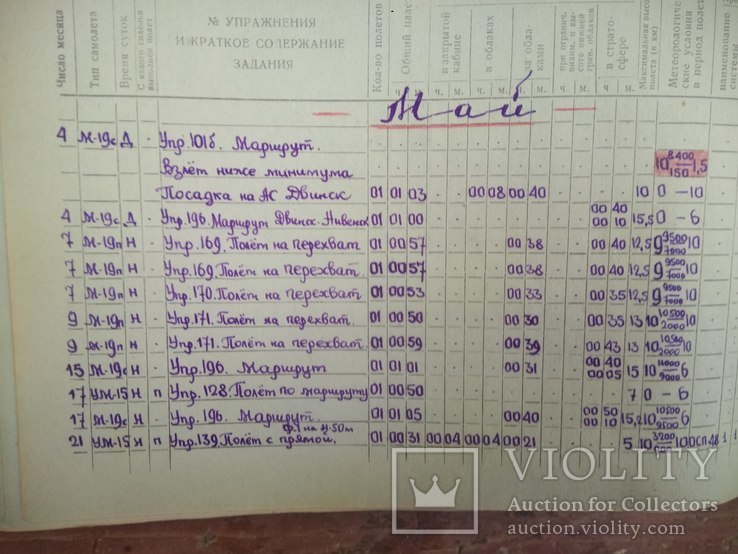 Число месяца
Тип самолета
Время суток
С какого сиденья выполнялся полет
№ УПРАЖНЕНИЯ
И КРАТКОЕ СОДЕРЖАНИЕ
ЗАДАНИЯ
Кол-во полетов
Общий
в закрытой кабине
в облаках
за обла-
ками
в страто-
сфере
Метеорологиче-
ские условия
в период полет
наименование
системы
ч. м. ч. м. ч. м. ч. м. ч. м.
Май
4 М-19с Д Упр. 101б. Маршрут.
Взлёт ниже минимума 10 8400/150 1,5
Посадка на АС Двинск 01 01 03 00 08 00 40 10 0 — 10
4 М-19с Д Упр. 196. Маршрут Двинск. Нивенск 01 01 00 00 40 00 10 15,5 0 — 6
7 М-19п Н Упр. 169. Полет на перехват 01 00 57 00 38 00 40 12,5 9 9500/7000 10
7 М-19п Н Упр. 169. Полет на перехват. 01 00 57 00 38 00 40 12,5 9 9500/7000 10
7 М-19п Н Упр. 170. Полет на перехват 01 00 53 00 33 00 35 12,5 9 9500/7000 10
9 М-19п Н Упр. 171. Полет на перехват. 01 00 50 00 30 00 35 13 10 10500/2000 10
9 М-19п Н Упр. 171. Полет на перехват. 01 00 59 00 39 00 43 13 10 10500/2000 10
15 М-19с Н Упр. 196. Маршрут 01 01 01 00 31 00 40 00 05 15 10 11000/9000 6
17 УМ-15 Н п Упр. 128. Полёт по маршруту 01 00 50 7 0 — 6
17 М-19с Н Упр. 196. Маршрут. 01 01 05 00 40 00 50 00 10 15,2 10 10500/9500 6
21 УМ-15 Н п Упр. 139. Полет с прямой. 01 00 31 00 04 00 04 00 21 5 10 10 ОСП 48 1
VIOLITY
Auction for Collectors
auction.violity.com